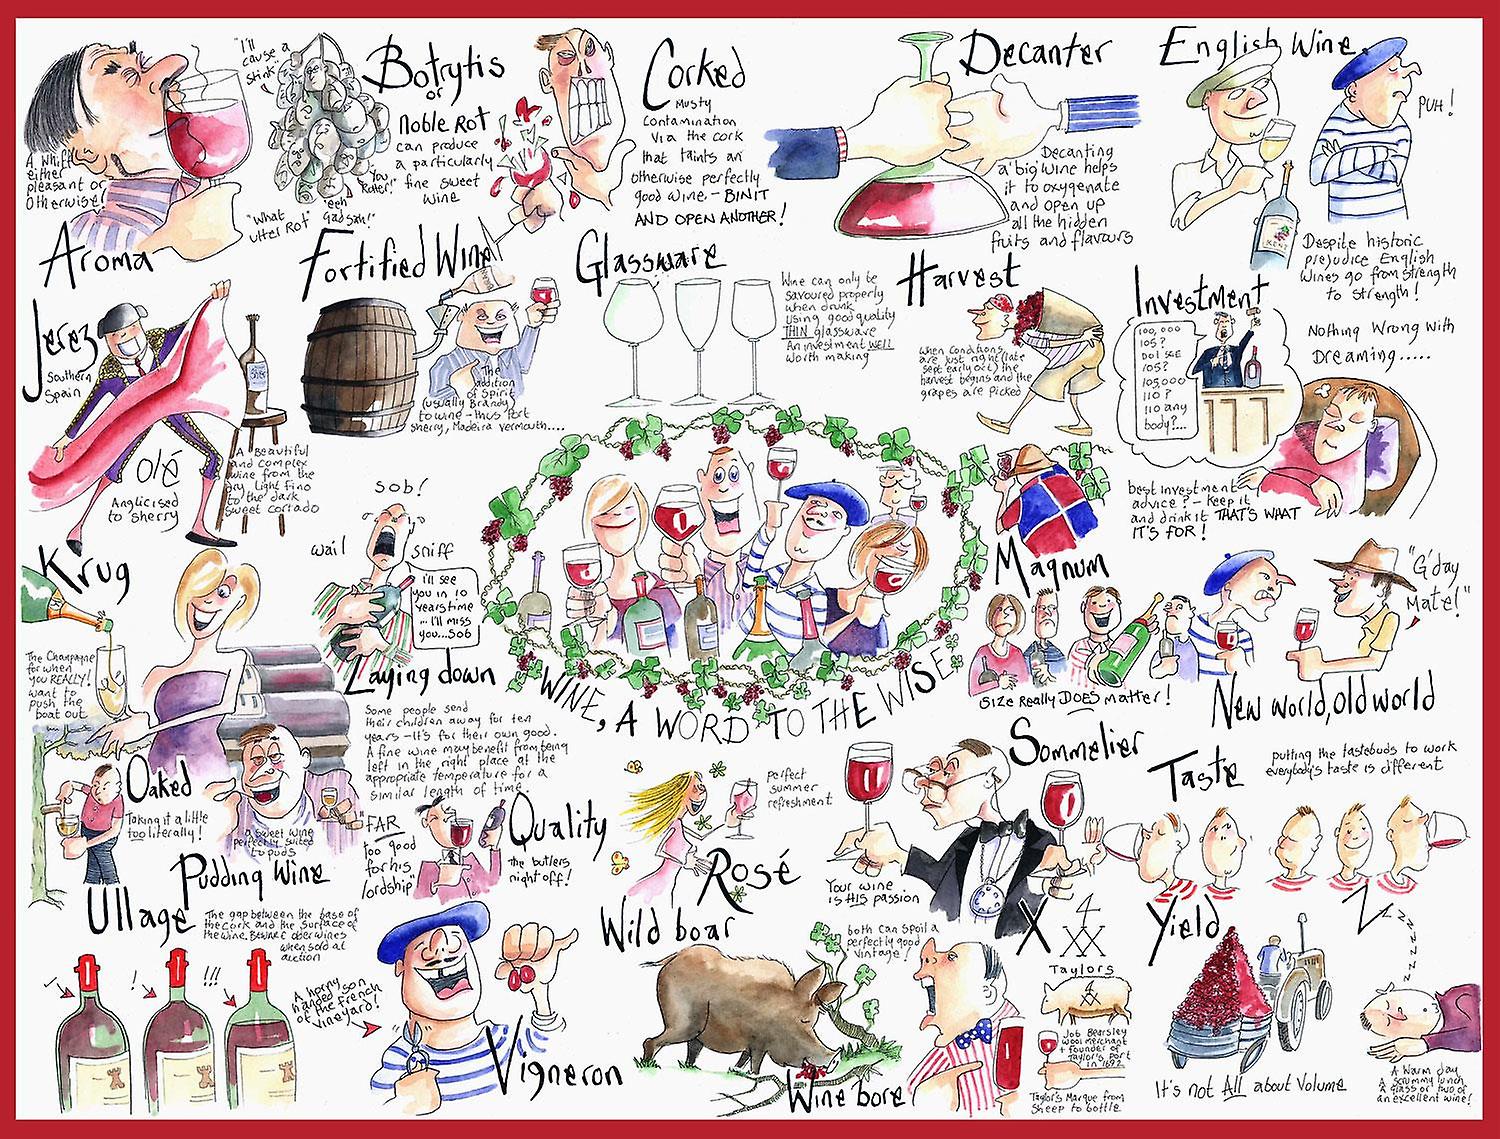 "I'll
cause a
stink"
A whiff
either
pleasant or
otherwise!
Aroma
Botrytis
or
Noble Rot
can produce
a particularly
fine sweet
wine
"You
Rotter!"
"What
utter Rot"
"egad sah!"
Corked
Musty
contamination
via the cork
that taints an
otherwise perfectly
good wine - BIN IT
AND OPEN ANOTHER!
Decanter
Decanting
a 'big' wine helps
it to oxygenate
and open up
all the hidden
fruits and flavours
English Wine
PUH!
KENT
Despite historic
prejudice English
Wines go from strength
to strength!
Jerez
Southern
Spain
Olé
Anglicised
to sherry
A beautiful
and complex
wine from the
dry light fino
to the dark
sweet cortado
Fortified Wine
The
addition
of Spirit
(usually Brandy)
to wine - thus Port
sherry, Madeira vermouth....
Glassware
Wine can only be
savoured properly
when drunk
using good quality
THIN glassware
An investment WELL
worth making
Harvest
When conditions
are just right (late
sept early oct) the
harvest begins and the
grapes are picked
Investment
100,000
105?
Do I see
105?
105,000
110?
110 any
body?...
Nothing wrong with
Dreaming.....
best investment
advice? - keep it
and drink it THAT'S WHAT
IT'S FOR!
Krug
The Champagne
for when
you REALLY!
want to
push the
boat out
sob!
wail
sniff
i'll see
you in 10
years time
... i'll miss
you...sob
Laying down
Some people send
their children away for ten
years - it's for their own good.
A fine wine may benefit from being
left in the 'right' place at the
appropriate temperature for a
similar length of time.
WINE, A WORD TO THE WISE
Magnum
Size Really DOES matter!
"G'day
Mate!"
New world, Old world
Oaked
Taking it a little
too literally!
a sweet wine
perfectly suited
to puds
Pudding Wine
"FAR
too good
for his
lordship"
Quality
the butlers
night off!
perfect
summer
refreshment
Rosé
Sommelier
Your wine
is HIS passion
Taste
putting the tastebuds to work
everybody's taste is different
Ullage
The gap between the base of
the cork and the surface of
the wine. Beware older wines
when sold at
auction
!
!!!
A horny
handed son
of the French
vineyard!
Vigneron
Wild boar
both can spoil a
perfectly good
vintage!
Wine bore
X
4
XX
Taylors
4
XX
Job Bearsley
wool merchant
+ founder of
Taylor's port
in 1692
Taylor's Marque from
sheep to bottle
Yield
It's not All about Volume
Z
zzzzzz
A warm day
A scrummy lunch
A glass or two of
an excellent wine!